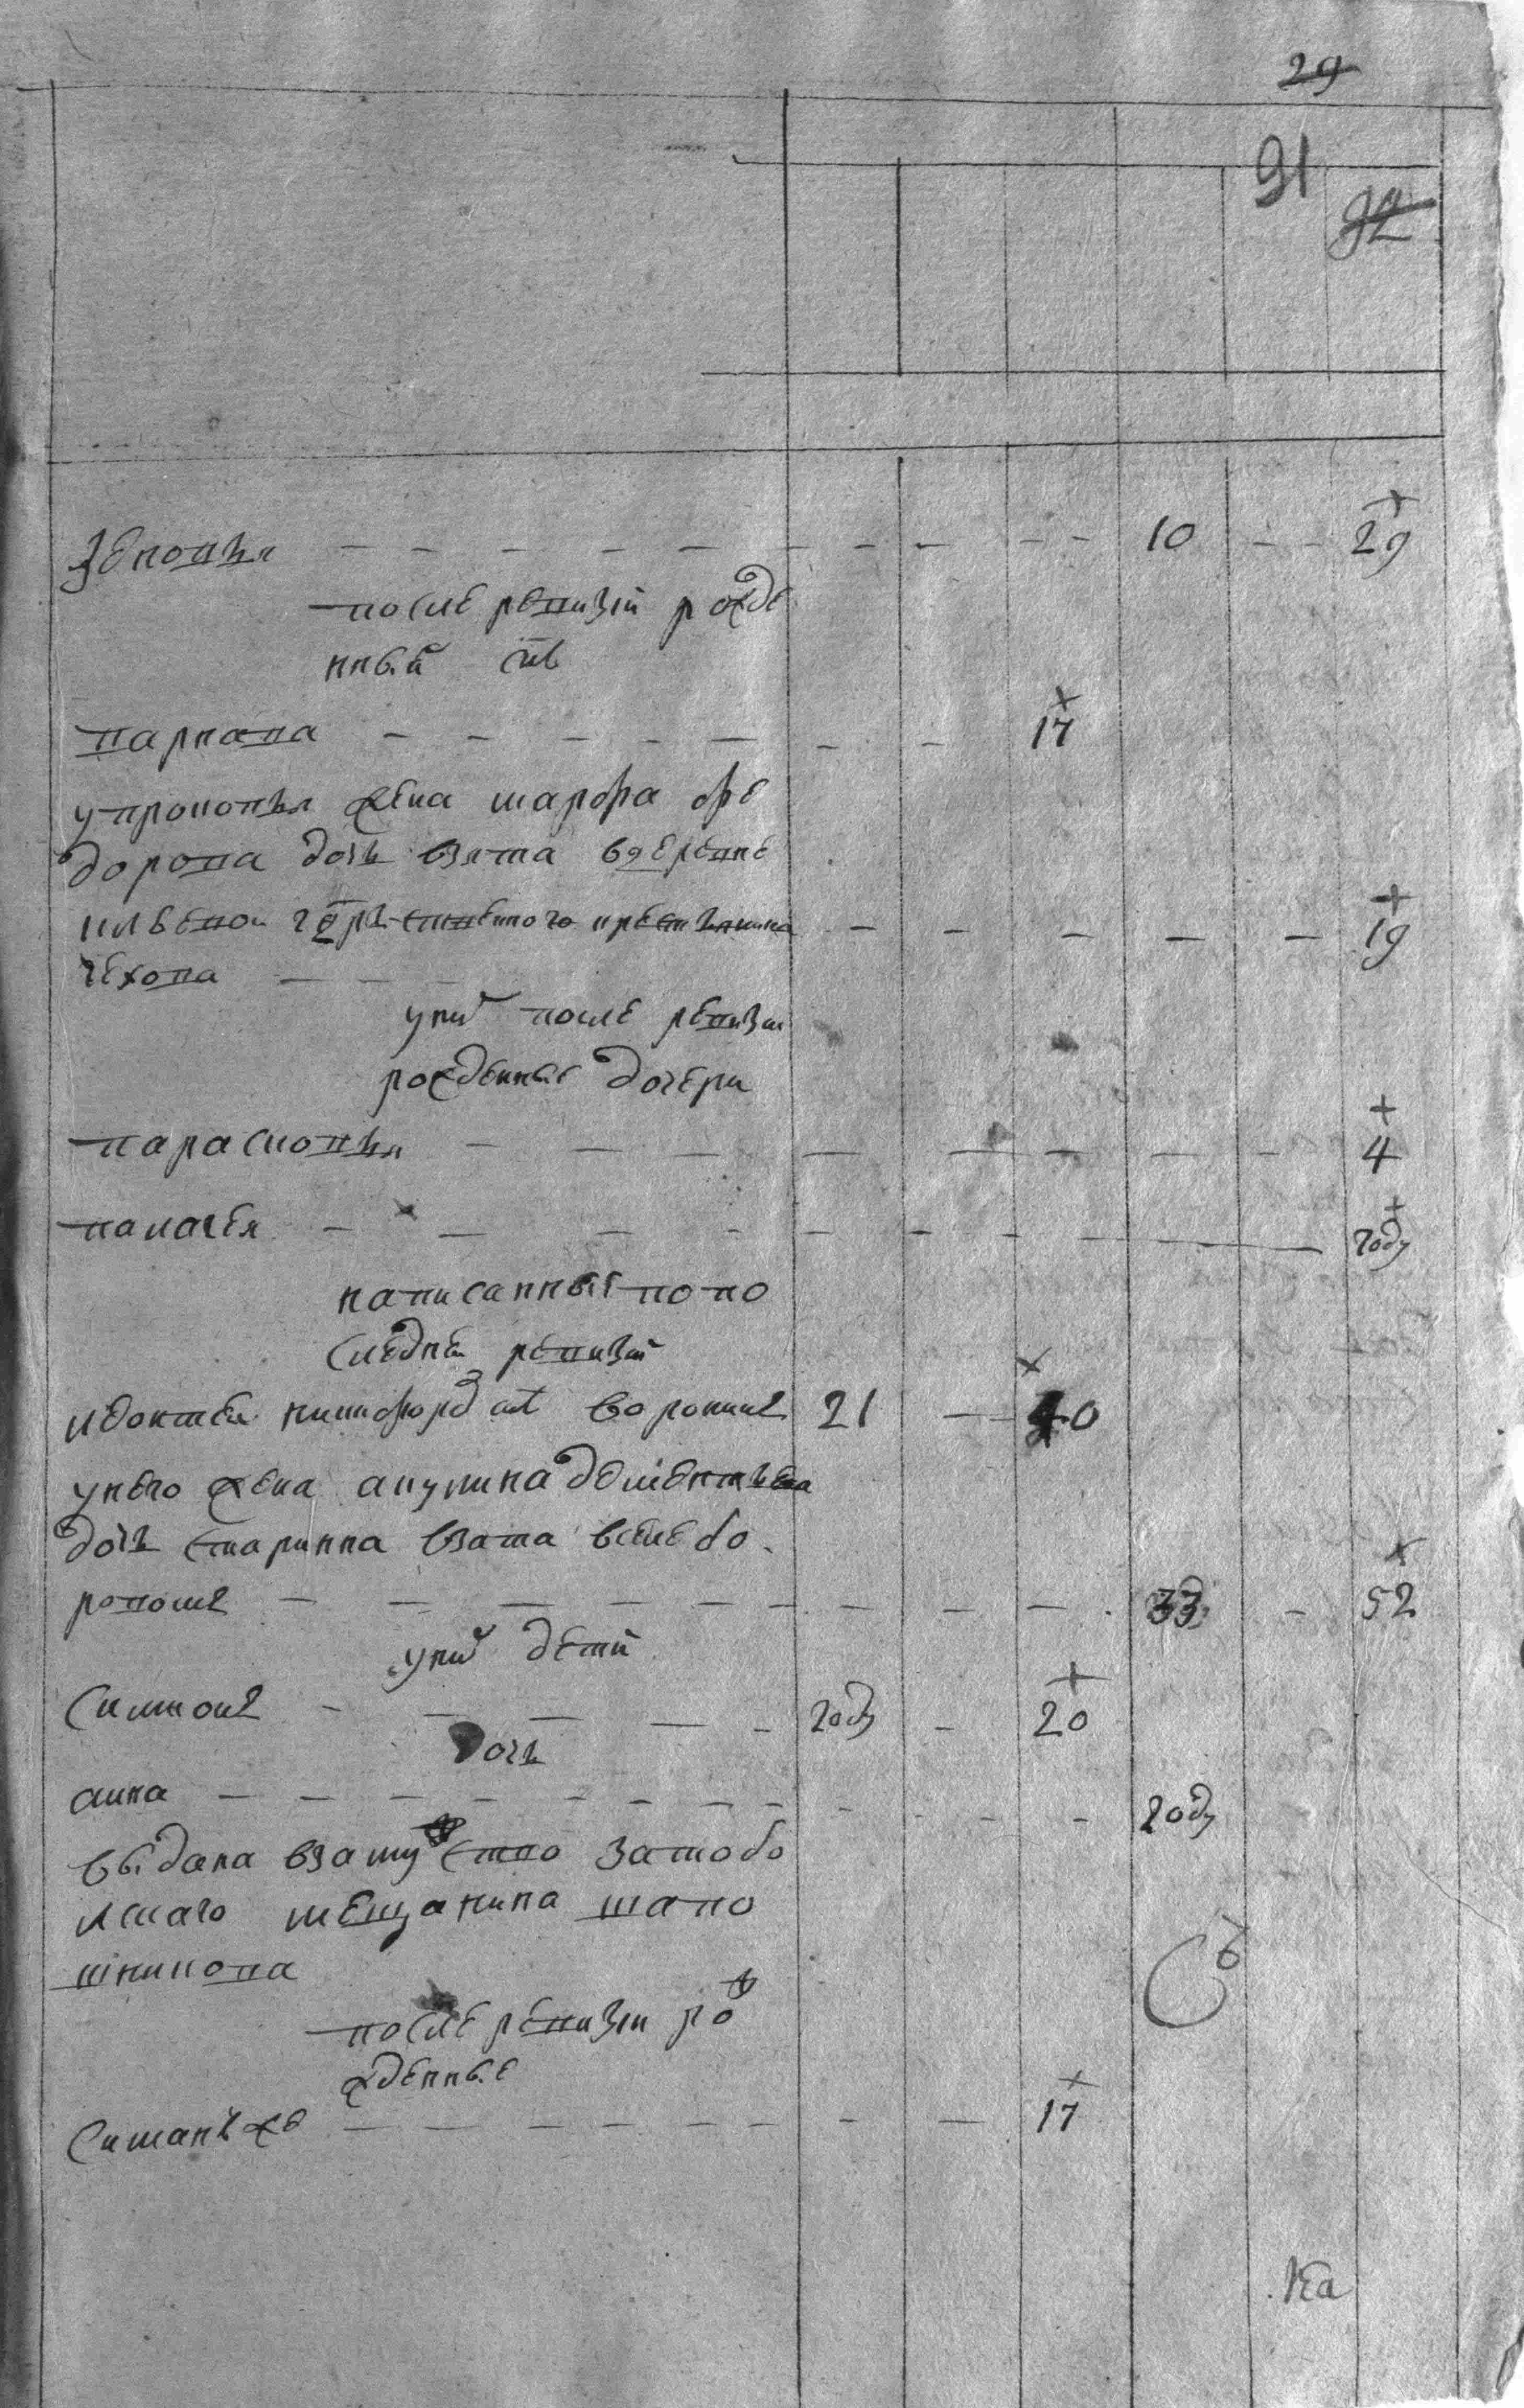 29
91
92
Зеновья — — — — — — — — — — 10 — — 29
после ревизiи рожде
нный снъ
Варвара — — — — — — — 17
у прокопья жена марфа фе
дорова дочь взята вдеревне
помещичьего крестьянина
чехова — — — — — — — 19
уних после ревизiи
рожденные дочери
Парасковья — — — — — — — — 4
Палагея — — — — — — — — году
написанныя попо
следней ревизiи
никифоров снъ воронинъ 21 — — 40
унево жена акулина дементьева
дочь старинна взята вселе бо
ровомъ — — — — — — — — — 33 — 52
уних дети
Симионъ — — — — — году — 20
дочь
анна — — — — — — — — — — — году
выдана взамужство затобо
лскаго мещанина шапо
шникова
после ревизiи ро
жденные
Симанъ же — — — — — — — — 17